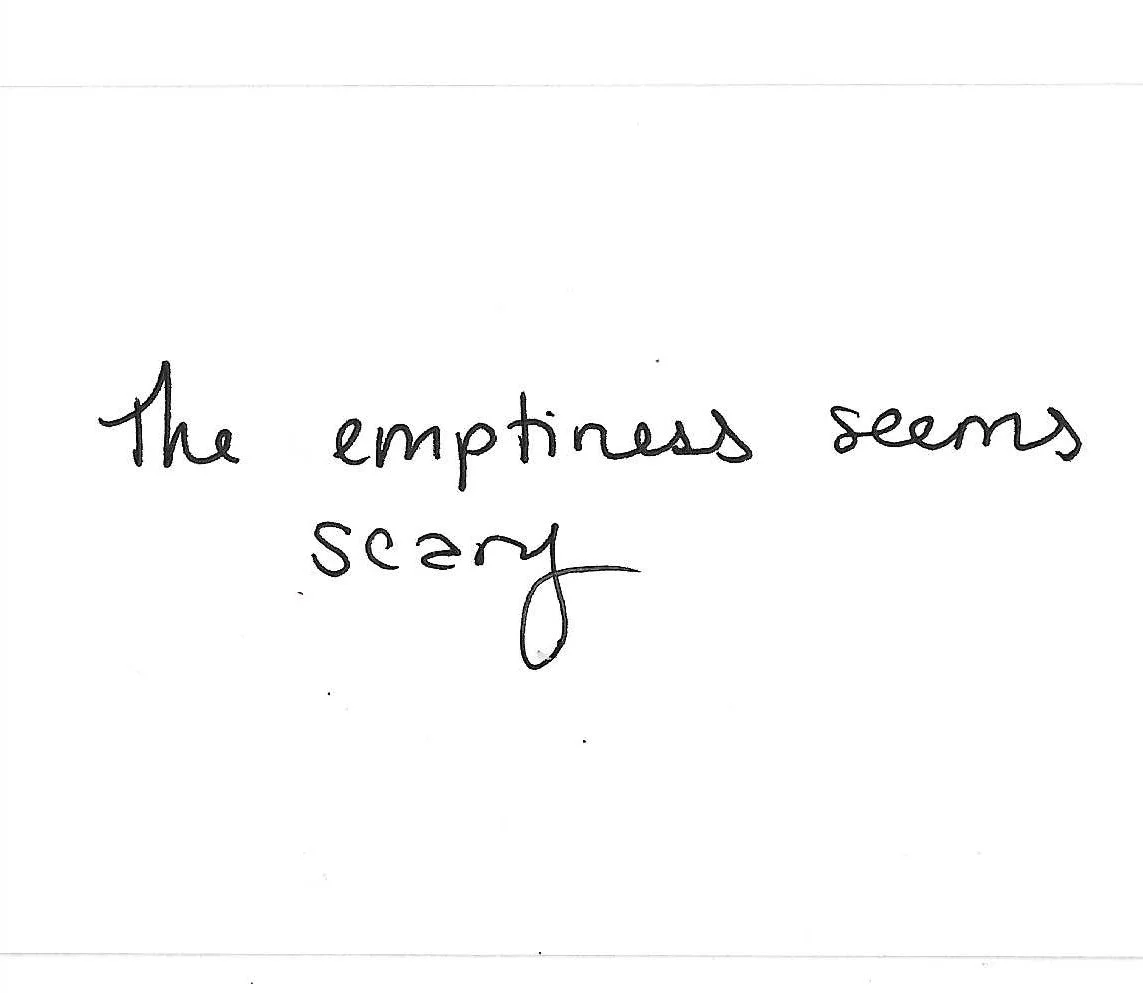 The emptiness seems
scary